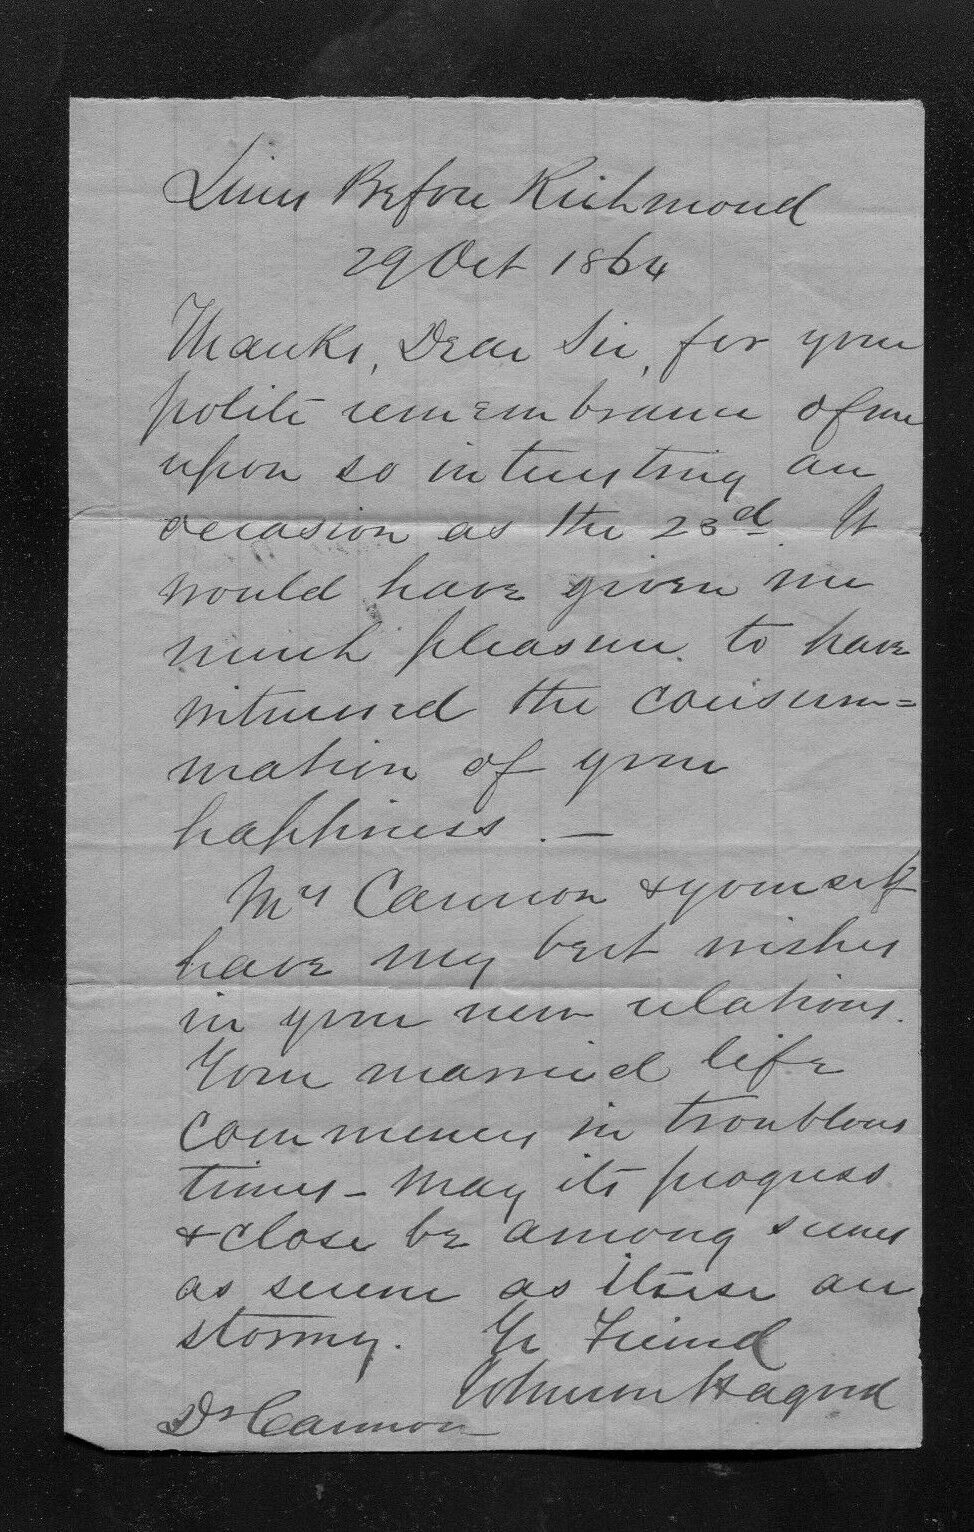 Lines Before Richmond
29 Oct 1864
Thanks, Dear Sir, for your
polite remembrance of me
upon so interesting an
occasion as the 23d. It
would have given me
much pleasure to have
witnessed the consum=
mation of your
happiness. —
Mrs Cannon & yourself
have my best wishes
in your new relations.
Your married life
commences in troublous
times - may its progress
& close be among scenes
as serene as these are
stormy. Yr Friend
Johnson Hagood
Dr Cannon